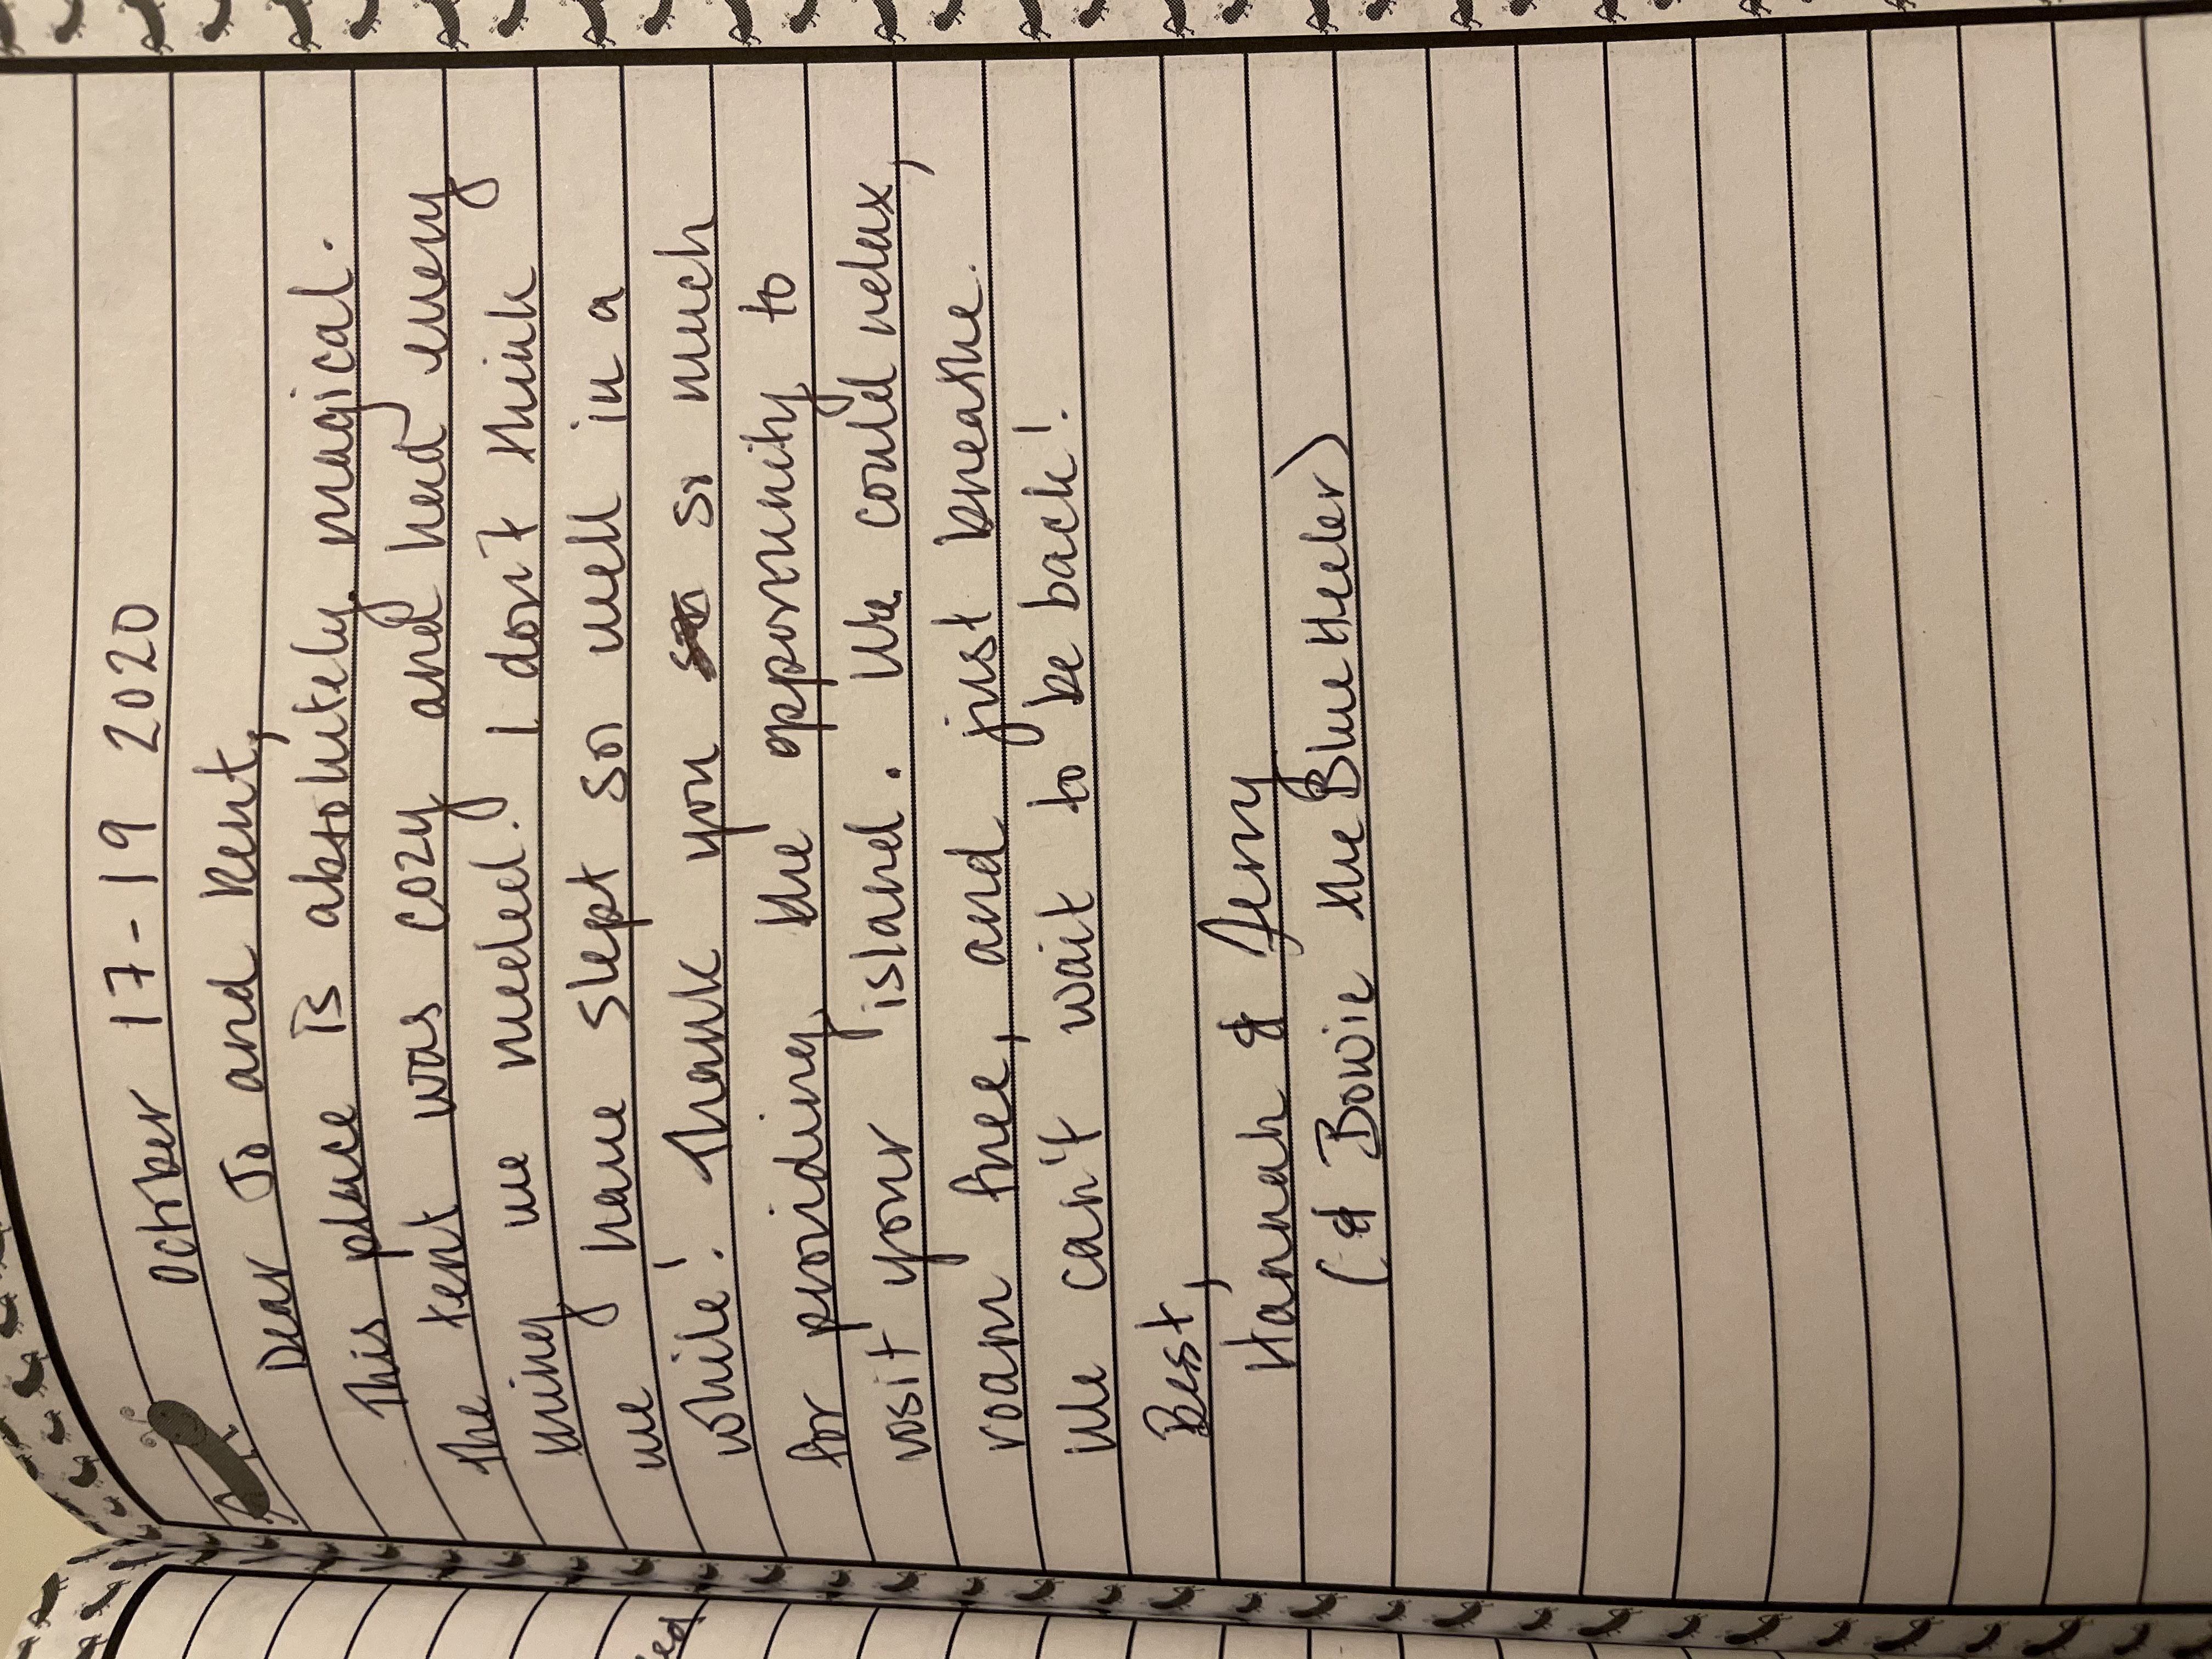 October 17-19 2020
Dear Jo and Kent,
This place is absolutely magical.
The tent was cozy and had every
thing we needed. I don't think
we have slept so well in a
while! Thank you so much
for providing the opportunity to
visit your island. We could relax,
roam free, and just breathe.
We can't wait to be back!
Best,
Hannah & Jerry
(& Bowie the Blue Heeler)